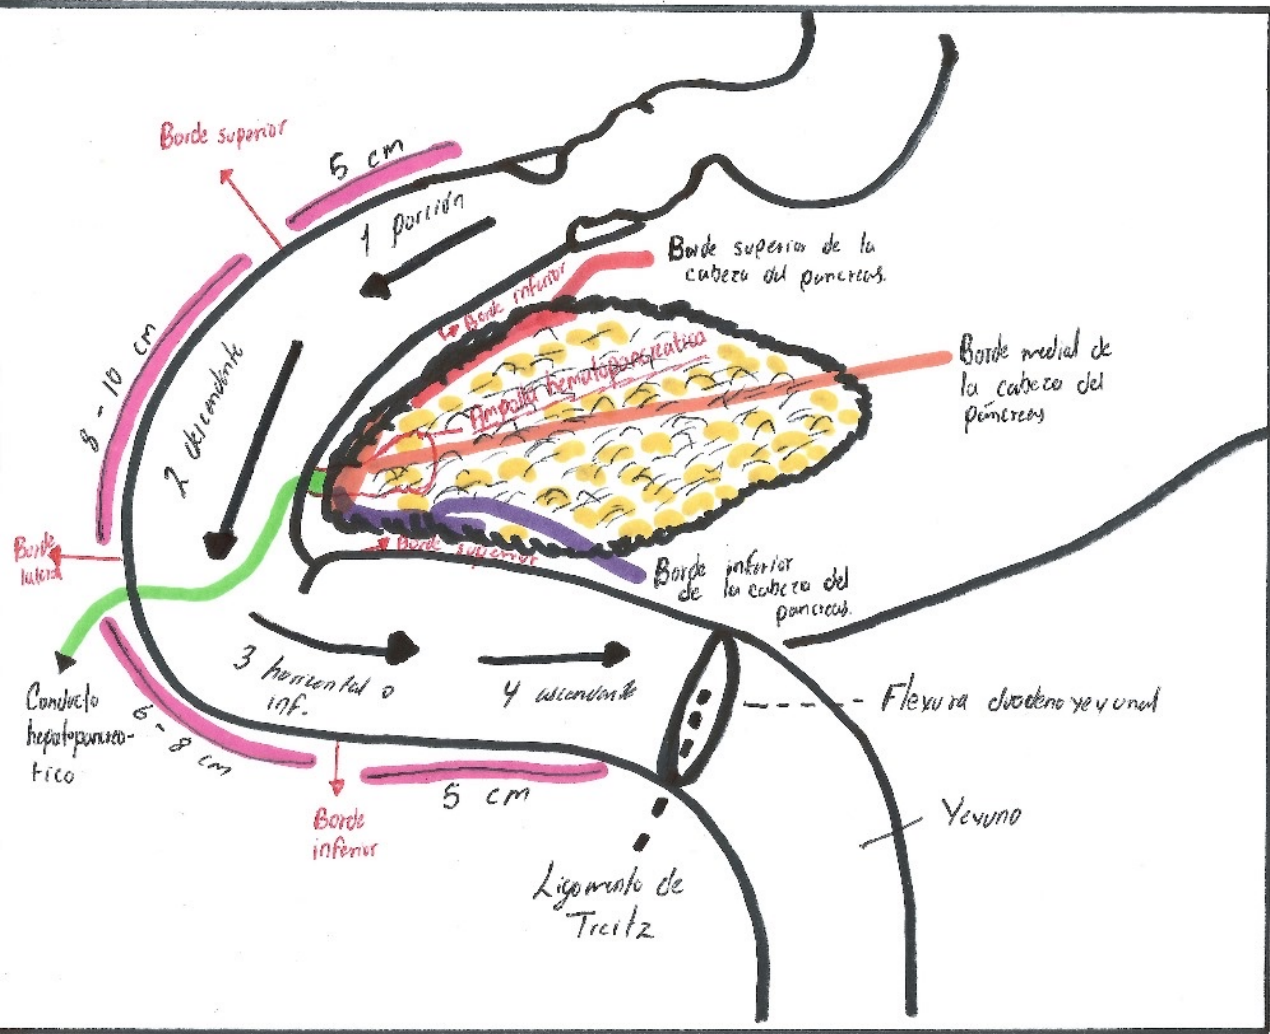 Borde superior
5 cm
1 porción
Borde superior de la
cabeza del pancreas.
Borde inferior
8 - 10 cm
2 descendente
Ampolla hematopancreatica
Borde medial de
la cabeza del
páncreas
Borde
lateral
Borde superior
Borde inferior
de la cabeza del
pancreas.
3 horizontal o
inf.
4 ascendente
Flexura duodenoyeyunal
Conducto
hepatopancrea-
tico
6 - 8 cm
5 cm
Borde
inferior
Yeyuno
Ligamento de
Treitz